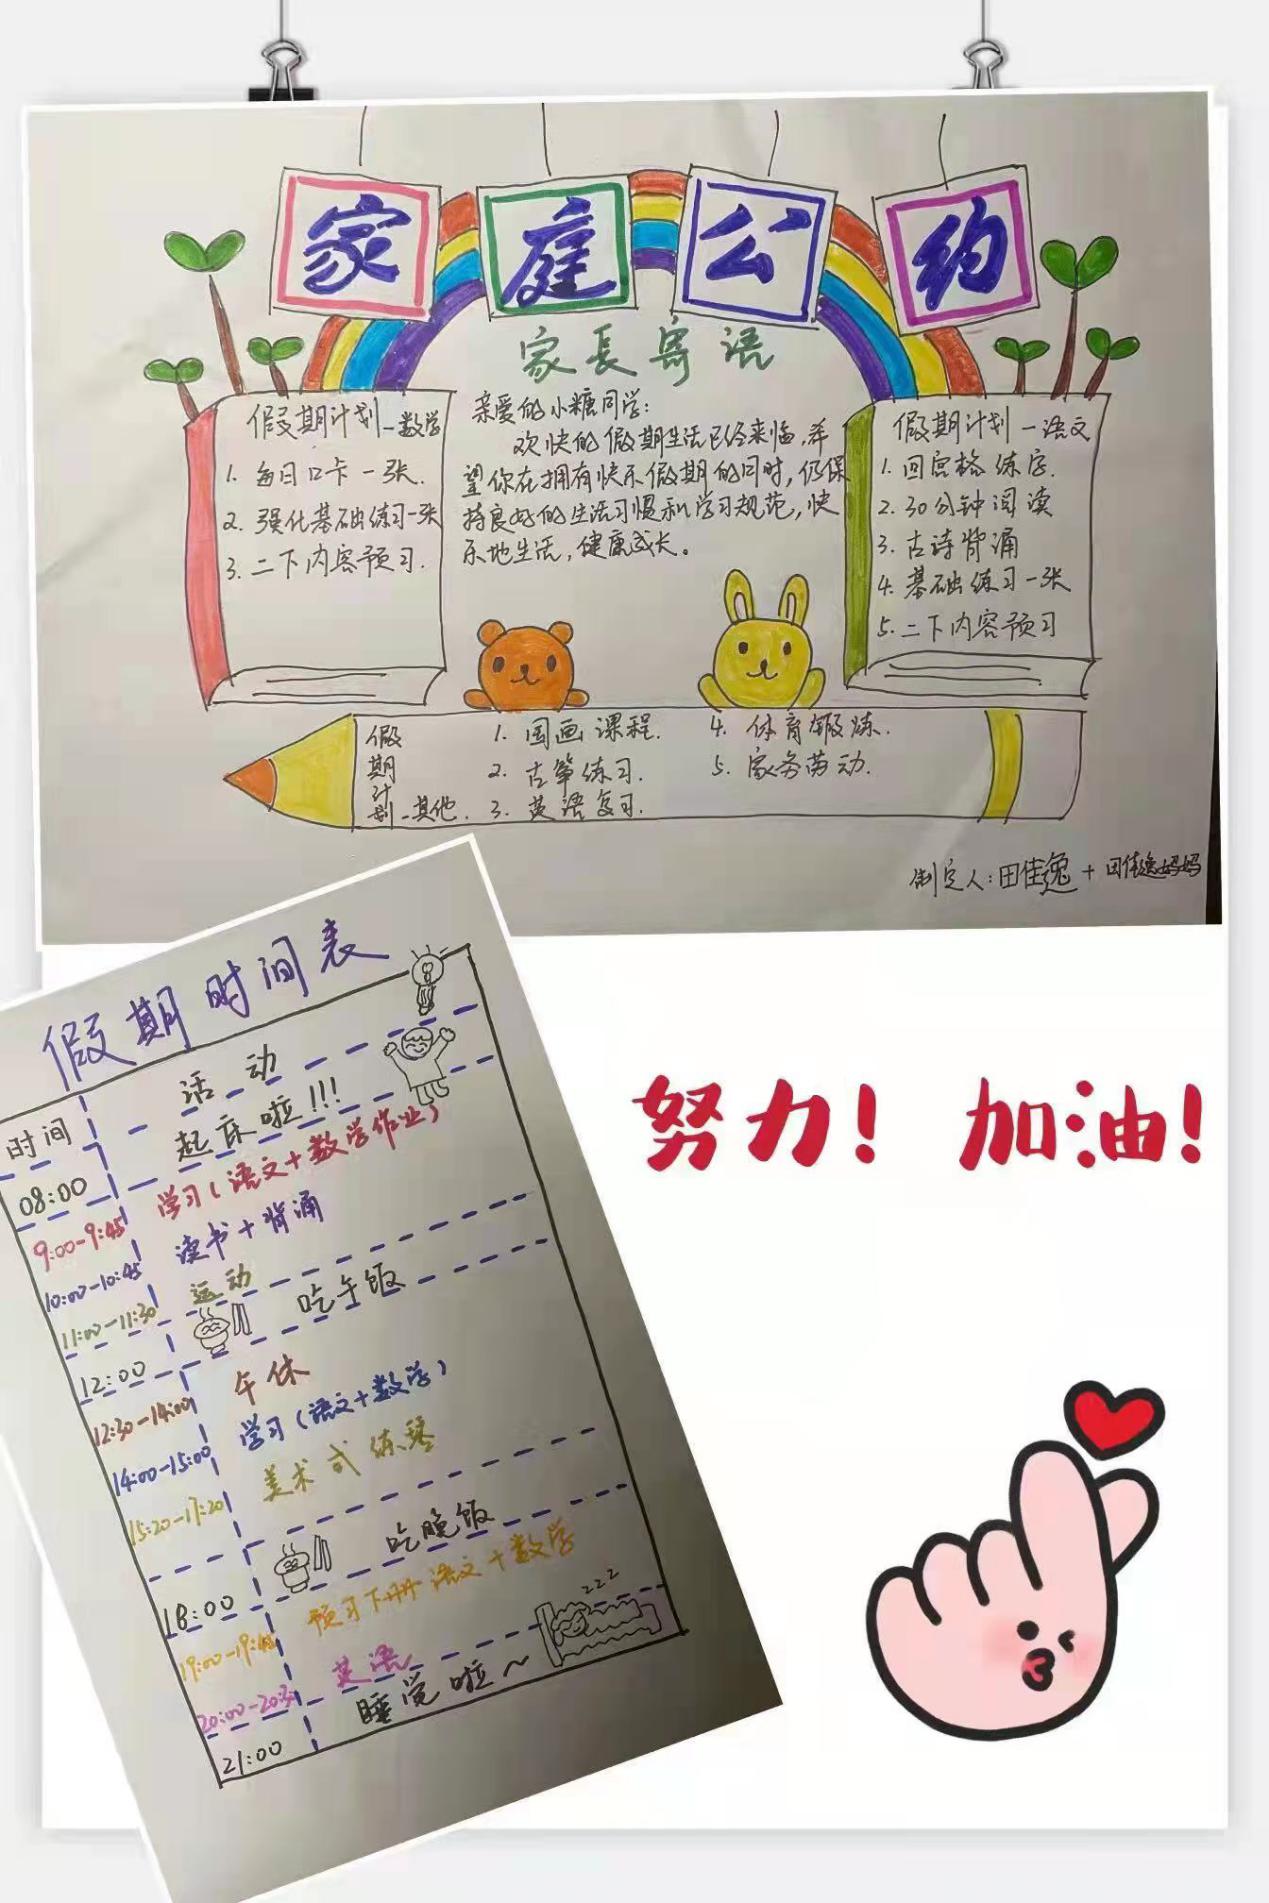 家庭公约
家长寄语
亲爱的小糖同学:
欢快的假期生活已经来临,希
望你在拥有快乐假期的同时,仍保
持良好的生活习惯和学习规范,快
乐地生活,健康成长。
假期计划-数学
1. 每日口卡一张.
2. 强化基础练习一张
3. 二下内容预习.
假期计划-语文
1. 回宫格练字.
2. 30分钟阅读
3. 古诗背诵
4. 基础练习一张
5. 二下内容预习
假期计划-其他.
1. 国画课程.
2. 古筝练习.
3. 英语复习.
4. 体育锻炼.
5. 家务劳动.
制定人:田佳逸+田佳逸妈妈
假期时间表
时间 活动
08:00 起床啦!!!
9:00-9:45 学习(语文+数学作业)
10:00-10:45 读书+背诵
11:00-11:30 运动
12:00 吃午饭
12:30-14:00 午休
14:00-15:00 学习(语文+数学)
15:20-17:20 美术或练琴
18:00 吃晚饭
19:00-19:45 预习下册语文+数学
20:00-20:30 英语
21:00 睡觉啦~
zzz
努力! 加油!